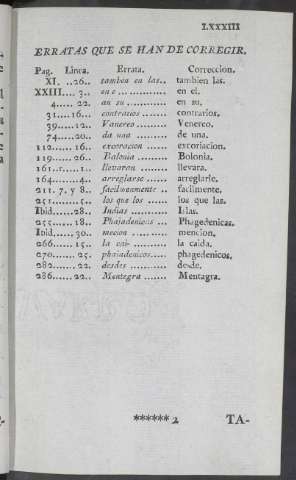 LXXXIII
ERRATAS QUE SE HAN DE CORREGIR.
Pag. Linea. Errata. Correccion.
XI. ..26.. tamben en las.. tambien las.
XXIII.... 3.. en e ............. en el.
4..... 22. an su ............ en su.
31....16... contratios ....... contrarios.
39....12.. Vanerco ........ Venereo.
74....20.. da una ......... de una.
112...... 16.. exoracion ...... excoriacion.
119...... 26.. Balonia ......... Bolonia.
161...... 1.. llevaron ........ llevara.
164......4.. arreglarse .... arreglarle.
211. 7. y 8.. facilmamente .. facilmente.
251......5.. los que los ...... los que las.
Ibid.....28.. Indias ........... Islas.
255......18.. Phajadenicas ... Phagedenicas.
Ibid.....30.. mecion ......... mencion.
266......15.. la cai- ........... la caida.
270...... 25. phajadenicos.... phagedenicos.
282......22.. desdes ......... desde.
286......22.. Mentegra ....... Mentagra.
****** 2 TA-